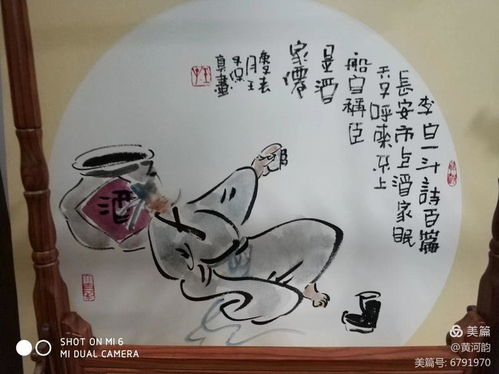 李白一斗詩百篇
長安市上酒家眠
天子呼來不上
船自稱臣
是酒
家僊
酒
SHOT ON MI 6
MI DUAL CAMERA
美篇
@黄河韵
美篇号: 6791970